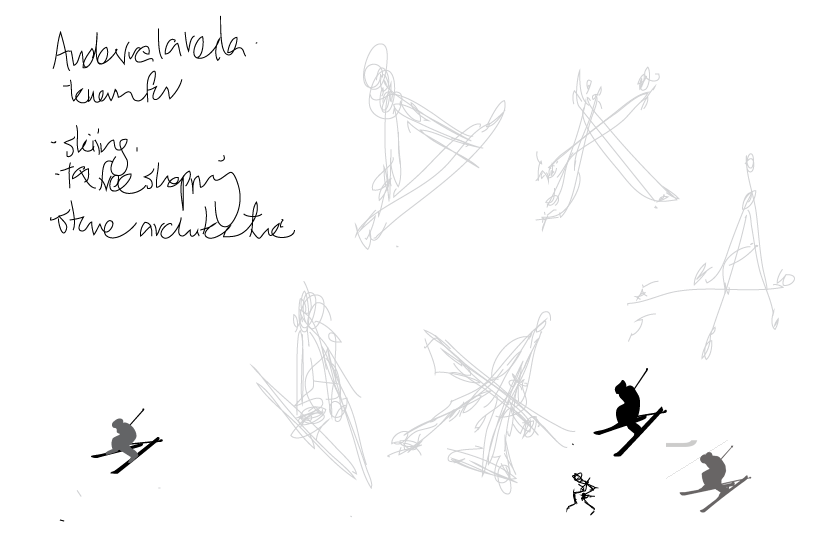 Andorra la vella.
-known for
-skiing.
-tax free shopping
stone architecture